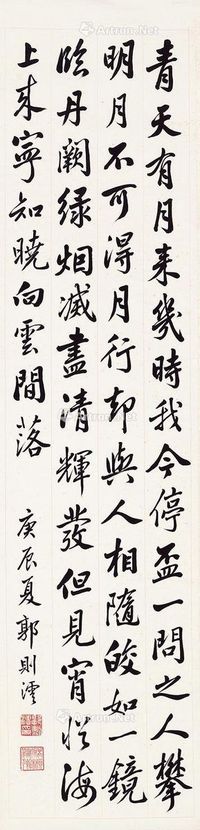 青天有月来幾時我今停盃一問之人攀
明月不可得月行却與人相隨皎如一鏡
臨丹闕緑烟滅盡清輝發但見宵從海
上来寧知曉向雲間落
庚辰夏郭則澐